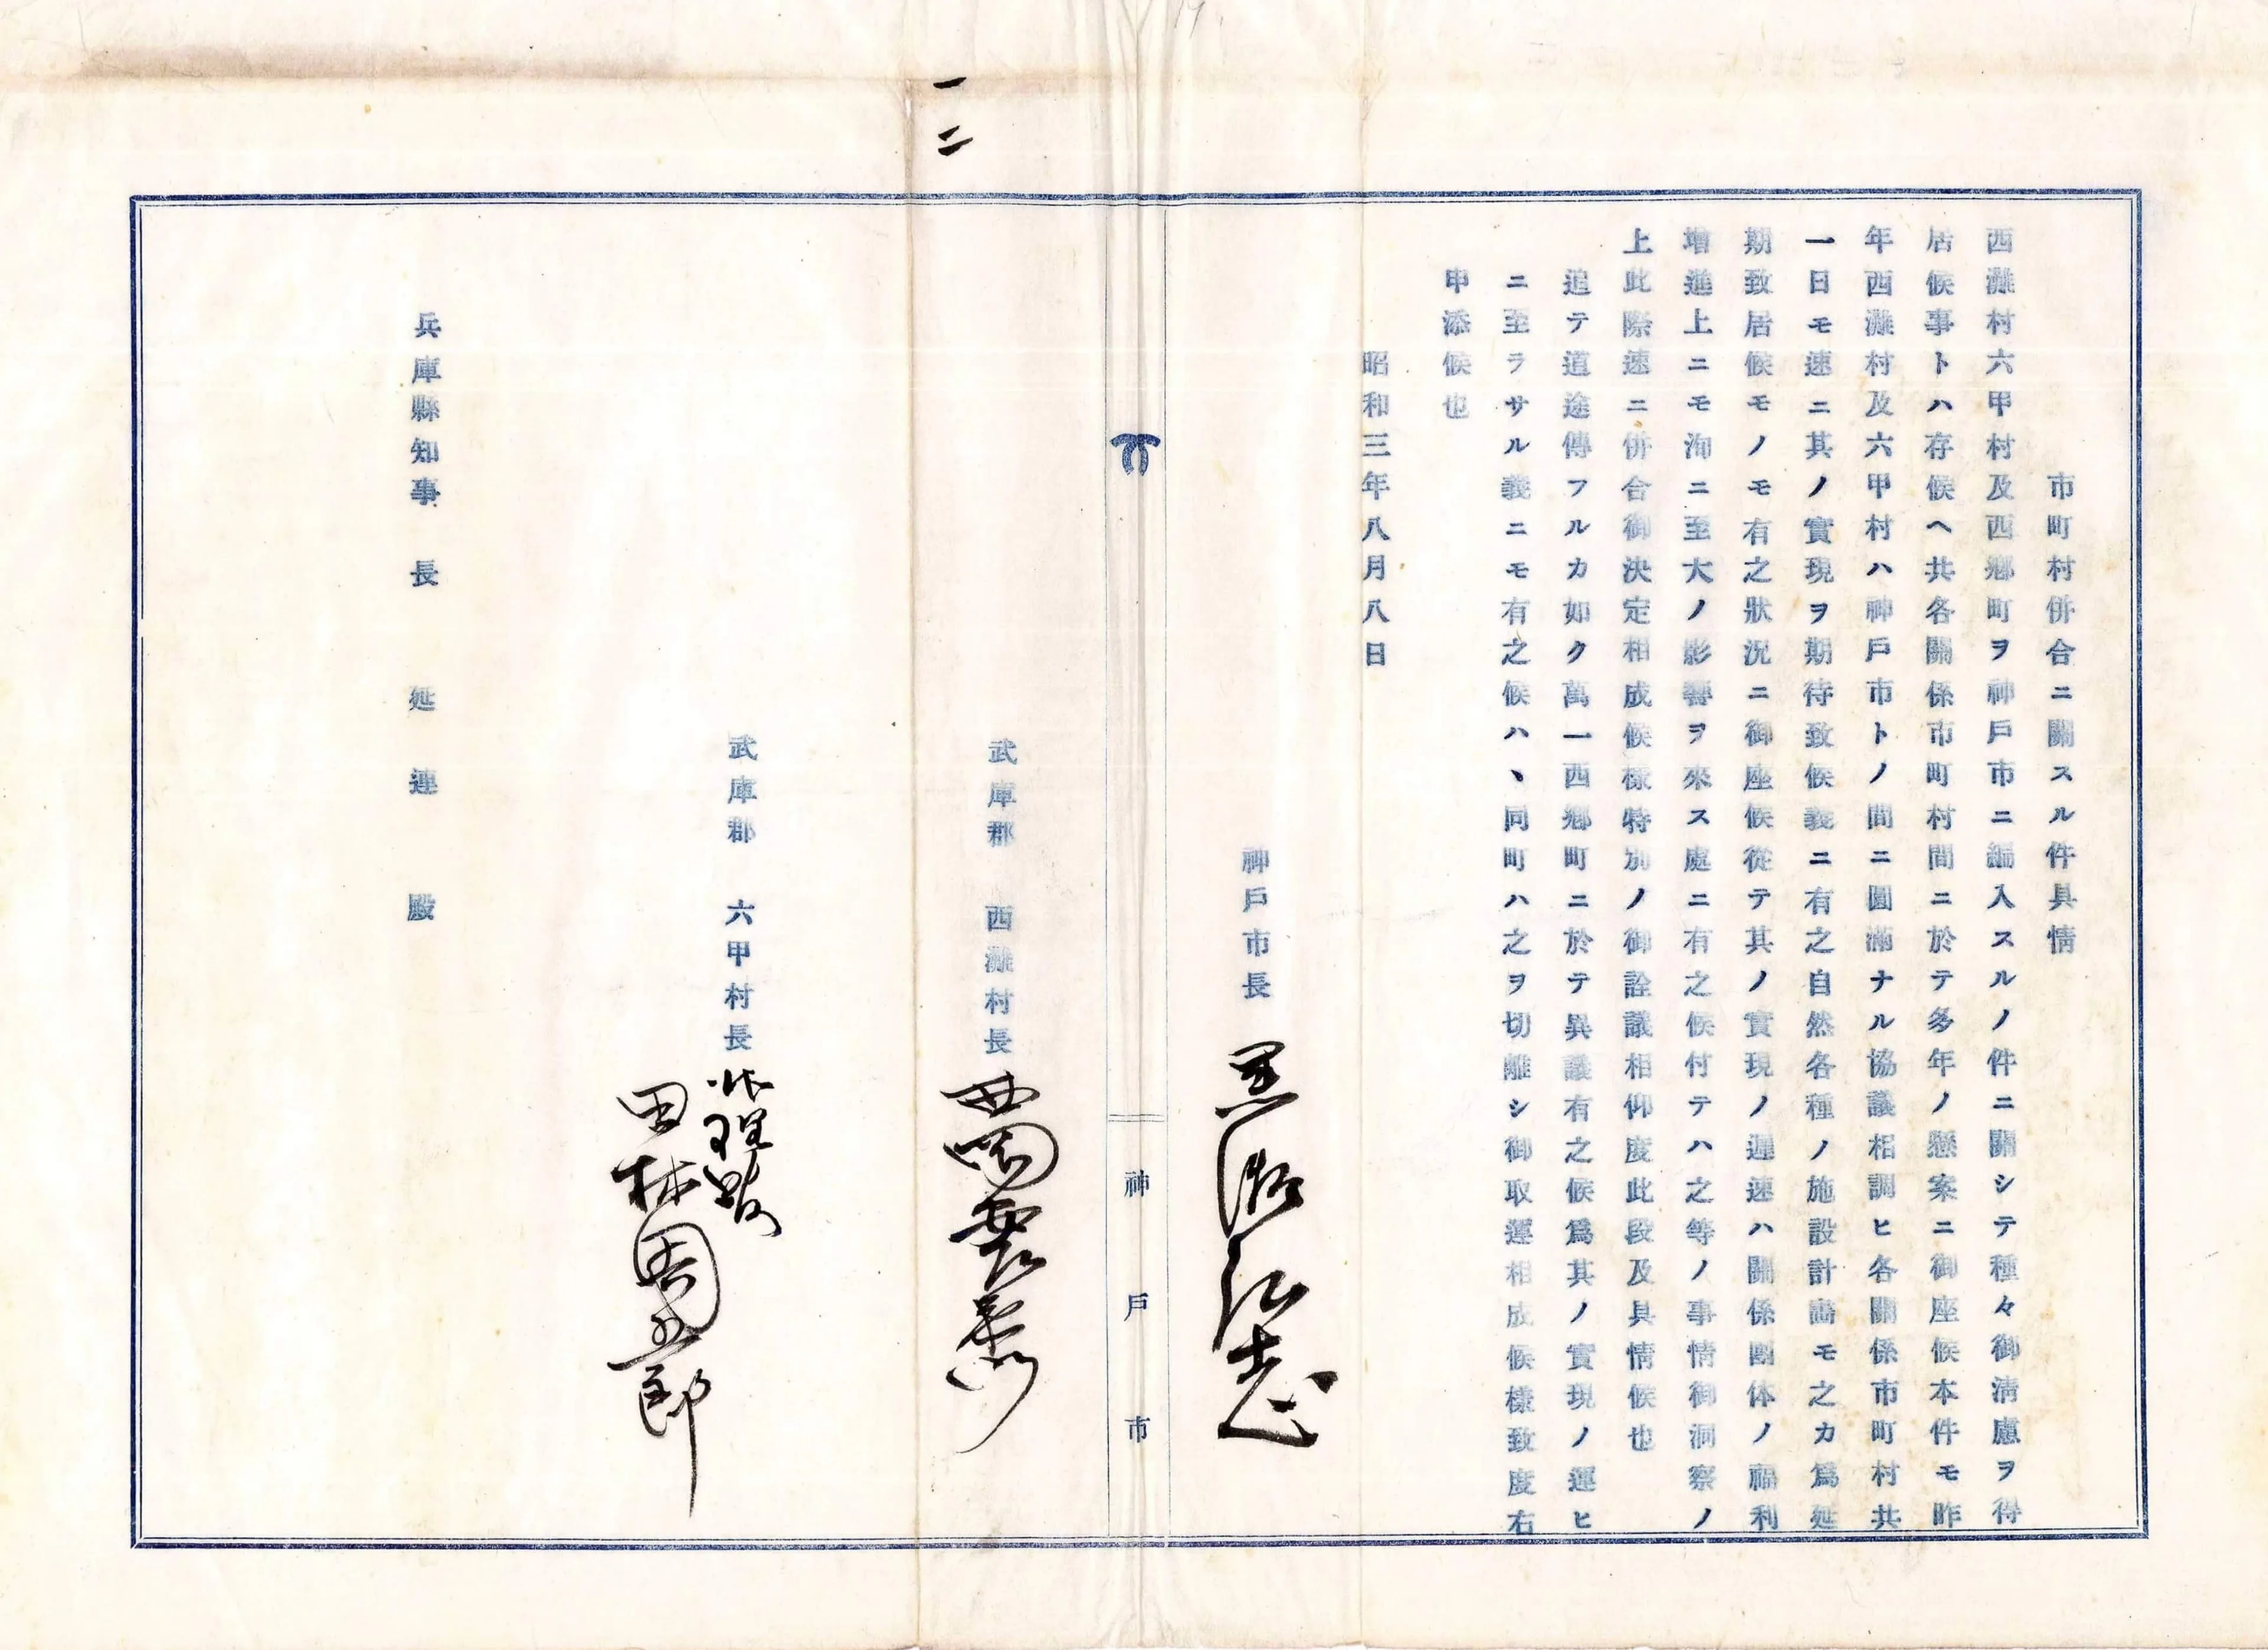 市町村併合ニ關スル件具情
西灘村六甲村及西郷町ヲ神戸市ニ編入スルノ件ニ關シテ種々御清慮ヲ得
居候事トハ存候ヘ共各關係市町村間ニ於テ多年ノ懸案ニ御座候本件モ昨
年西灘村及六甲村ハ神戸市トノ間ニ圓滿ナル協議相調ヒ各關係市町村共
一日モ速ニ其ノ實現ヲ期待致候義ニ有之自然各種ノ施設計畵モ之カ爲延
期致居候モノモ有之狀況ニ御座候從テ其ノ實現ノ遲速ハ關係團体ノ福利
增進上ニモ洵ニ至大ノ影響ヲ來ス處ニ有之候付テハ之等ノ事情御洞察ノ
上此際速ニ併合御決定相成候樣特別ノ御詮議相仰度此段及具情候也
追テ道途傳フルカ如ク萬一西郷町ニ於テ異議有之候爲其ノ實現ノ運ヒ
ニ至ラサル義ニモ有之候ハヽ同町ハ之ヲ切離シ御取運相成候樣致度右
申添候也
昭和三年八月八日
神戸市長 黒瀬弘志
神戸市
一二
武庫郡 西灘村長
武庫郡 六甲村長
田林
郎
兵庫縣知事 長 延連 殿